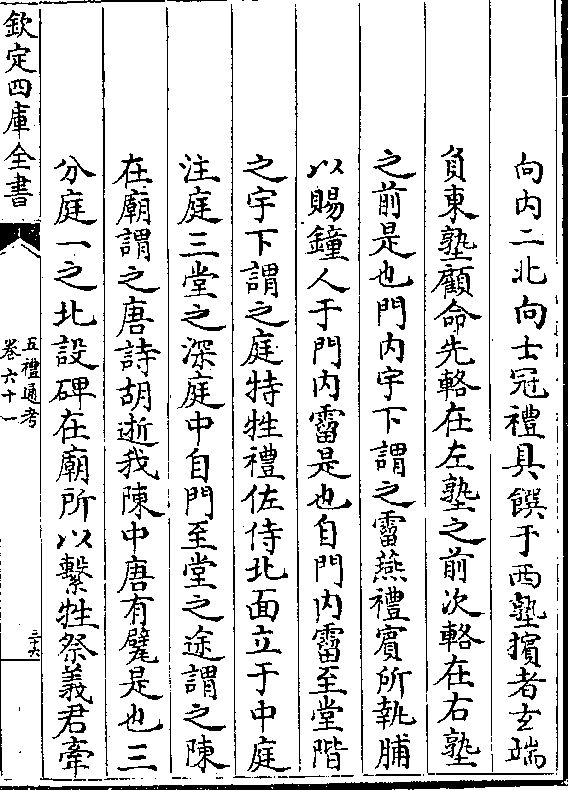 向内二北向士冠禮具饌于西塾擯者玄端
負東塾顧命先輅在左塾之前次輅在右塾
之前是也門内宇下謂之霤燕禮賓所執脯
以賜鐘人于門内霤是也自門内霤至堂階
之宇下謂之庭特牲禮佐侍北面立于中庭
注庭三堂之深庭中自門至堂之途謂之陳
在廟謂之唐詩胡逝我陳中唐有甓是也三
分庭一之北設碑在廟所以繫牲祭義君牽
欽定四庫全書
五禮通考
卷六十一
三六